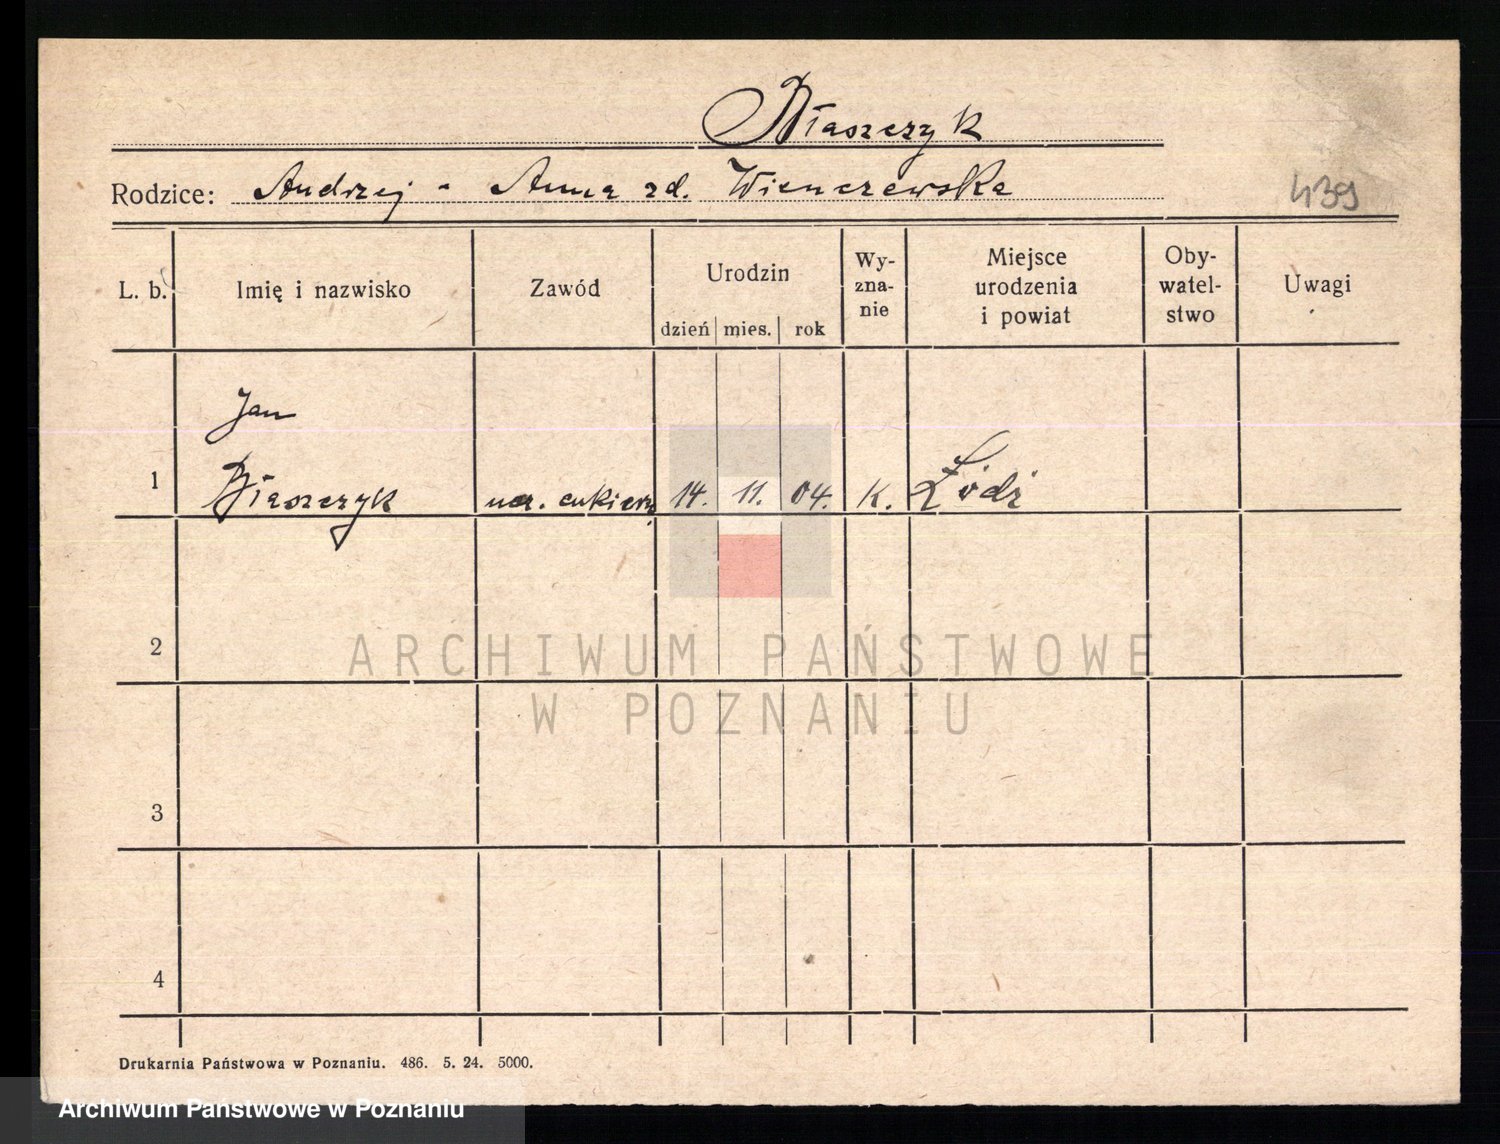 Błaszczyk
Rodzice: Andrzej - Anna zd. Wienczewska
439
L. b. Imię i nazwisko Zawód Urodzin dzień mies. rok Wy-zna-nie Miejsce urodzenia i powiat Oby-watel-stwo Uwagi
Jan
1 Błaszczyk ucz. cukiern. 14. 11. 04. K. Łódź
2
ARCHIWUM PAŃSTWOWE
W POZNANIU
3
4
Drukarnia Państwowa w Poznaniu. 486. 5. 24. 5000.
Archiwum Państwowe w Poznaniu